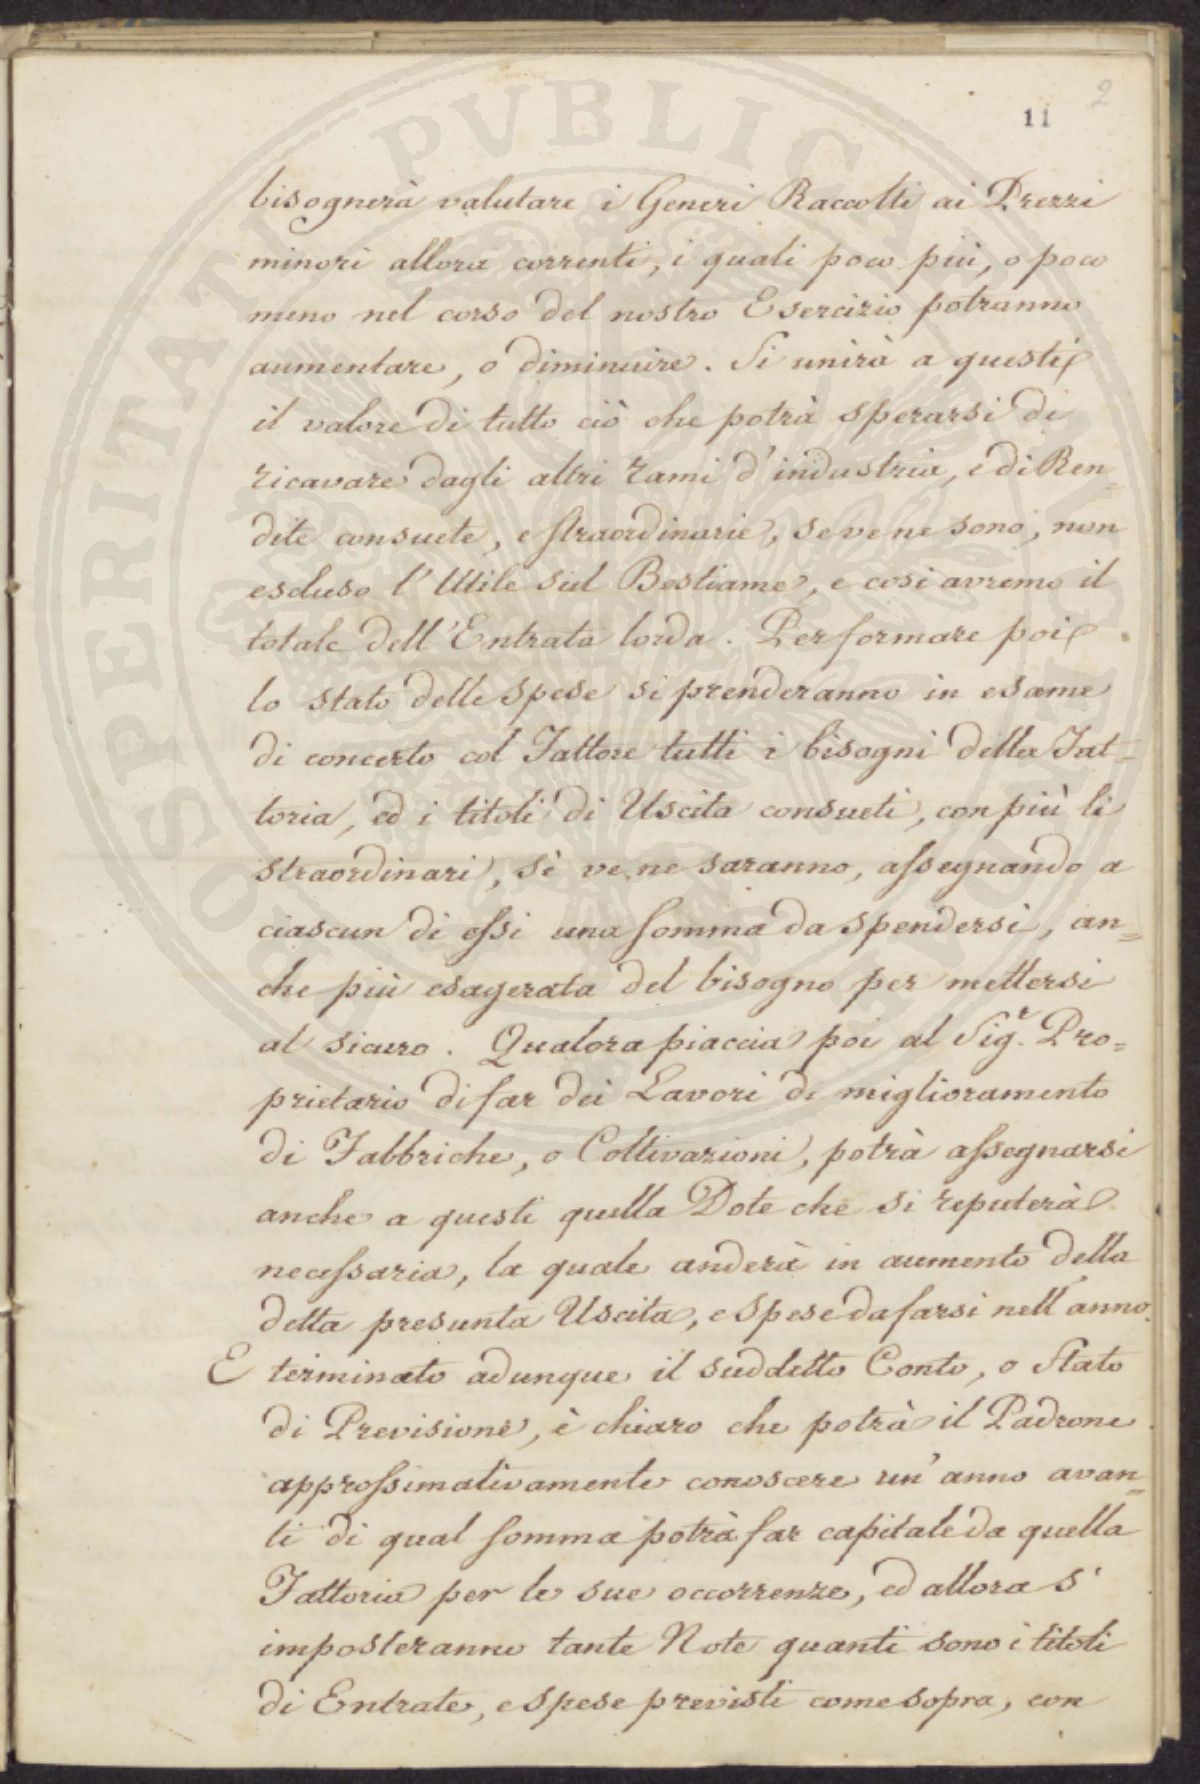 2
11
bisognerà valutare i Generi Raccolti ai Prezzi
minori allora correnti, i quali poco più, o poco
meno nel corso del nostro Esercizio potranno
aumentare, o diminuire. Si unirà a questi
il valore di tutto ciò che potrà sperarsi di
ricavare dagli altri rami d'industria, e di Ren=
dite consuete, e straordinarie, se ve ne sono, non
escluso l'Utile sul Bestiame, e così avremo il
totale dell'Entrata lorda. Per formare poi
lo stato delle spese si prenderanno in esame
di concerto col Fattore tutti i bisogni della Fat=
toria, ed i titoli di Uscita consueti, con più li
straordinari, sè ve ne saranno, assegnando a
ciascun di essi una somma da spendersi, an=
che più esagerata del bisogno per mettersi
al sicuro. Qualora piaccia poi al Sig.r Pro=
prietario di far dei Lavori di miglioramento
di Fabbriche, o Coltivazioni, potrà assegnarsi
anche a questi quella Dote che si reputerà
necessaria, la quale anderà in aumento della
detta presunta Uscita, e spese da farsi nell'anno.
E terminato adunque il suddetto Conto, o Stato
di Previsione, è chiaro che potrà il Padrone
approssimativamente conoscere un'anno avan=
ti di qual somma potrà far capitale da quella
Fattoria per le sue occorrenze, ed allora s'
imposteranno tante Note quanti sono i titoli
di Entrate, e spese previsti come sopra, con
PROSPERITATI PUBLICAE